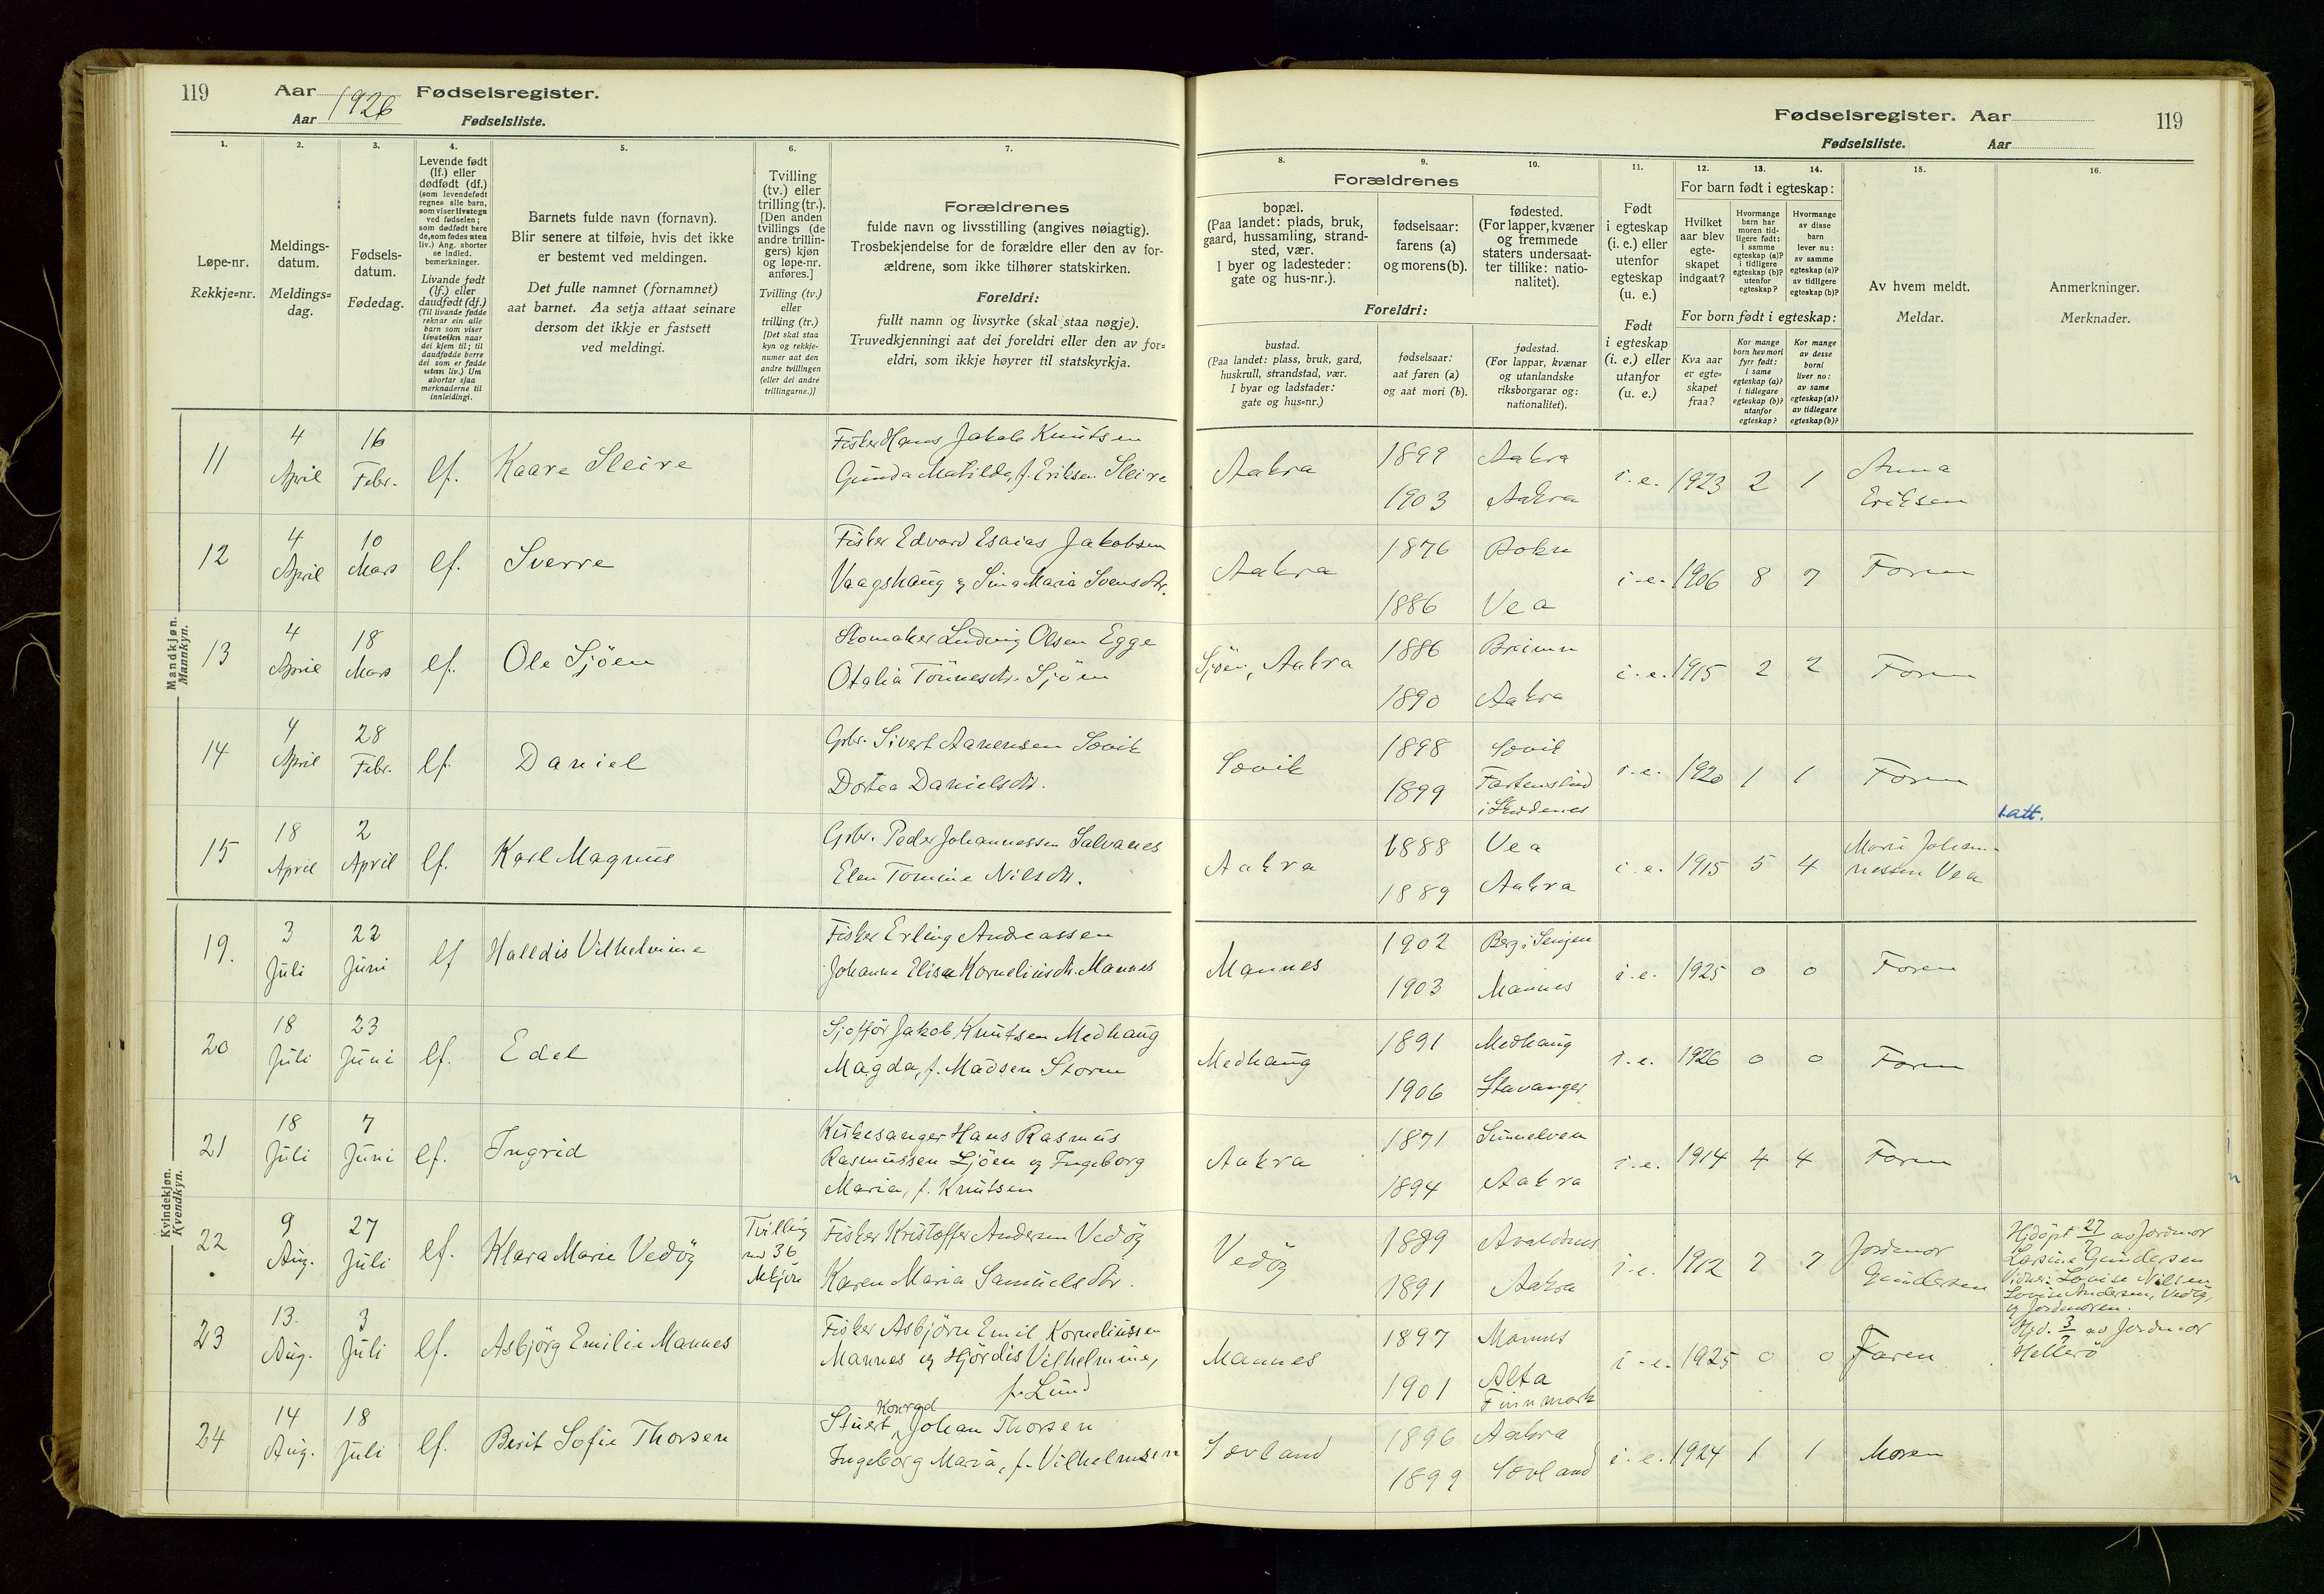 119
Aar 1926 Fødselsregister.
Aar Fødselsliste.
Fødselsregister. Aar
Fødselsliste. Aar
119
1.
Løpe-nr.
Rekkje=nr.
2.
Meldings-
datum.
Meldings=
dag.
3.
Fødsels-
datum.
Fødedag.
4.
Levende født
(lf.) eller
dødfødt (df.)
(som levendefødt
regnes alle barn,
som viser livstegn
ved fødselen;
som dødfødt bare
de, som fødes uten
liv.) Ang. aborter
se indled.
bemerkninger.
Livande født
(lf.) eller
daudfødt (df.)
(Til livande fødde
reknar ein alle
barn som viser
livsteikn naar
dei kjem til; til
daudfødde berre
dei som er fødde
utan liv.) Um
abortar sjaa
merknaderne til
innleidingi.
5.
Barnets fulde navn (fornavn).
Blir senere at tilføie, hvis det ikke
er bestemt ved meldingen.
Det fulle namnet (fornamnet)
aat barnet. Aa setja attaat seinare
dersom det ikkje er fastsett
ved meldingi.
6.
Tvilling
(tv.) eller
trilling (tr.).
[Den anden
tvillings (de
andre trillin-
gers) kjøn
og løpe-nr.
anføres.]
Tvilling (tv.)
eller
trilling (tr.)
[Det skal staa
kyn og rekkje-
numer aat den
andre tvillingen
(eller dei andre
trillingarne.)]
7.
Forældrenes
fulde navn og livsstilling (angives nøiagtig).
Trosbekjendelse for de forældre eller den av for-
ældrene, som ikke tilhører statskirken.
Foreldri:
fullt namn og livsyrke (skal staa nøgje).
Truvedkjenningi aat dei foreldri eller den av for=
eldri, som ikkje høyrer til statskyrkja.
Forældrenes
8.
bopæl.
(Paa landet: plads, bruk,
gaard, hussamling, strand-
sted, vær.
I byer og ladesteder:
gate og hus-nr.).
9.
fødselsaar:
farens (a)
og morens (b).
10.
fødested.
(For lapper, kvæner
og fremmede
staters undersaat-
ter tillike: natio-
nalitet).
Foreldri:
bustad.
(Paa landet: plass, bruk, gard,
huskrull, strandstad, vær.
I byar og ladstader:
gate og hus=nr.)
fødselsaar:
aat faren (a)
og aat mori (b).
fødestad.
(For lappar, kvænar
og utanlandske
riksborgarar og:
nationalitet).
11.
Født
i egteskap
(i. e.) eller
utenfor
egteskap
(u. e.)
Født
i egteskap
(i. e.) eller
utanfor
(u. e.)
12. 13. 14.
For barn født i egteskap:
Hvilket
aar blev
egte-
skapet
indgaat?
Hvormange
barn har
moren tid-
ligere født:
i samme
egteskap (a)?
i tidligere
egteskap (b)?
utenfor
egteskap?
Hvormange
av disse
barn
lever nu:
av samme
egteskap (a)?
av tidligere
egteskap (b)?
For born født i egteskap:
Kva aar
er egte=
skapet
fraa?
Kor mange
born hev mori
fyrr født:
i same
egteskap (a)?
i tidlegare
egteskap (b)?
utanfor
egteskap?
Kor mange
av desse
borni
liver no:
av same
egteskap (a)?
av tidlegare
egteskap (b)?
15.
Av hvem meldt.
Meldar.
16.
Anmerkninger.
Merknader.
Mandkjøn.
Mannkyn.
11
4
April
16
Febr.
lf.
Kaare Sleire
Fisker Hans Jakob Knutsen
Gunda Matilde, f. Eriksen Sleire
Aakra
1899
1903
Aakra
Aakra
i. e. 1923 2 1
Anna
Eriksen
12
4
April
10
Mars
lf.
Sverre
Fisker Edvard Esaias Jakobsen
Vaagshaug og Sina Maria Svensdtr.
Aakra
1876
1886
Bokn
Vea
i. e. 1906 8 7 Faren
13
4
April
18
Mars
lf.
Ole Sjöen
Skomaker Ludvig Olsen Egge
Otalia Tönnesdtr. Sjöen
Sjöen, Aakra
1886
1890
Breimn
Aakra
i. e. 1915 2 2 Faren
14
4
April
28
Febr.
lf.
Daniel
Gbr. Sivert Aanensen Sævik
Dortea Danielsdtr.
Sævik
1898
1899
Sævik
i Skudenes
i. e. 1920 1 1 Faren
1. att.
15
18
April
2
April
lf.
Karl Magnus
Gbr. Peder Johannessen Salvanes
Elen Tomine Nilsdtr.
Aakra
1888
1889
Vea
Aakra
i. e. 1915 5 4
Marie Johan-
nessen Vea
Kvindekjøn.
Kvendkyn.
19.
3
Juli
22
Juni
lf
Halldis Vilhelmine
Fisker Erling Andreassen
Johanne Elise Korneliusdtr. Mannes
Mannes
1902
1903
Berg i Senjen
Mannes
i. e. 1925 0 0 Faren
20
18
Juli
23
Juni
lf.
Edel
Sjoffør Jakob Knutsen Medhaug
Magda, f. Madsen Storm
Medhaug
1891
1906
Medhaug
Stavanger
i. e. 1926 0 0 Faren
21
18
Juli
7
Juni
lf.
Ingrid
Kirkesanger Hans Rasmus
Rasmussen Sjöen og Ingeborg
Maria, f. Knutsen
Aakra
1871
1894
Sunnelven
Aakra
i. e. 1914 4 4 Faren
22
9
Aug.
27
Juli
lf.
Klara Marie Vedöy
Tvilling
nr 36
Mkjön
Fisker Kristoffer Andersen Vedöy
Karen Maria Samuelsdtr.
Vedöy
1889
1891
Avaldsnes
Aakra
i. e. 1912 7 7
Jordmor
Gundersen
Hjdöpt 27/7 av Jordmor
Larsine Gundersen
Vidner: Lovise Nilsen
Lovise Andersen, Vedöy,
og Jordmoren.
23
13.
Aug.
3
Juli
lf.
Asbjörg Emilie Mannes
Fisker Asbjörn Emil Korneliussen
Mannes og Hjördis Vilhelmine,
f. Lund
Mannes
1897
1901
Mannes
Alta
Finnmark
i. e. 1925 0 0 Faren
Hjd. 3/7 av Jordmor
Hellerö
24
14
Aug.
18
Juli
lf.
Berit Sofie Thorsen
Konrad
Stuert, Johan Thorsen
Ingeborg Maria, f. Vilhelmsen
Sævland
1896
1899
Aakra
Sævland
i. e. 1924 1 1 Moren